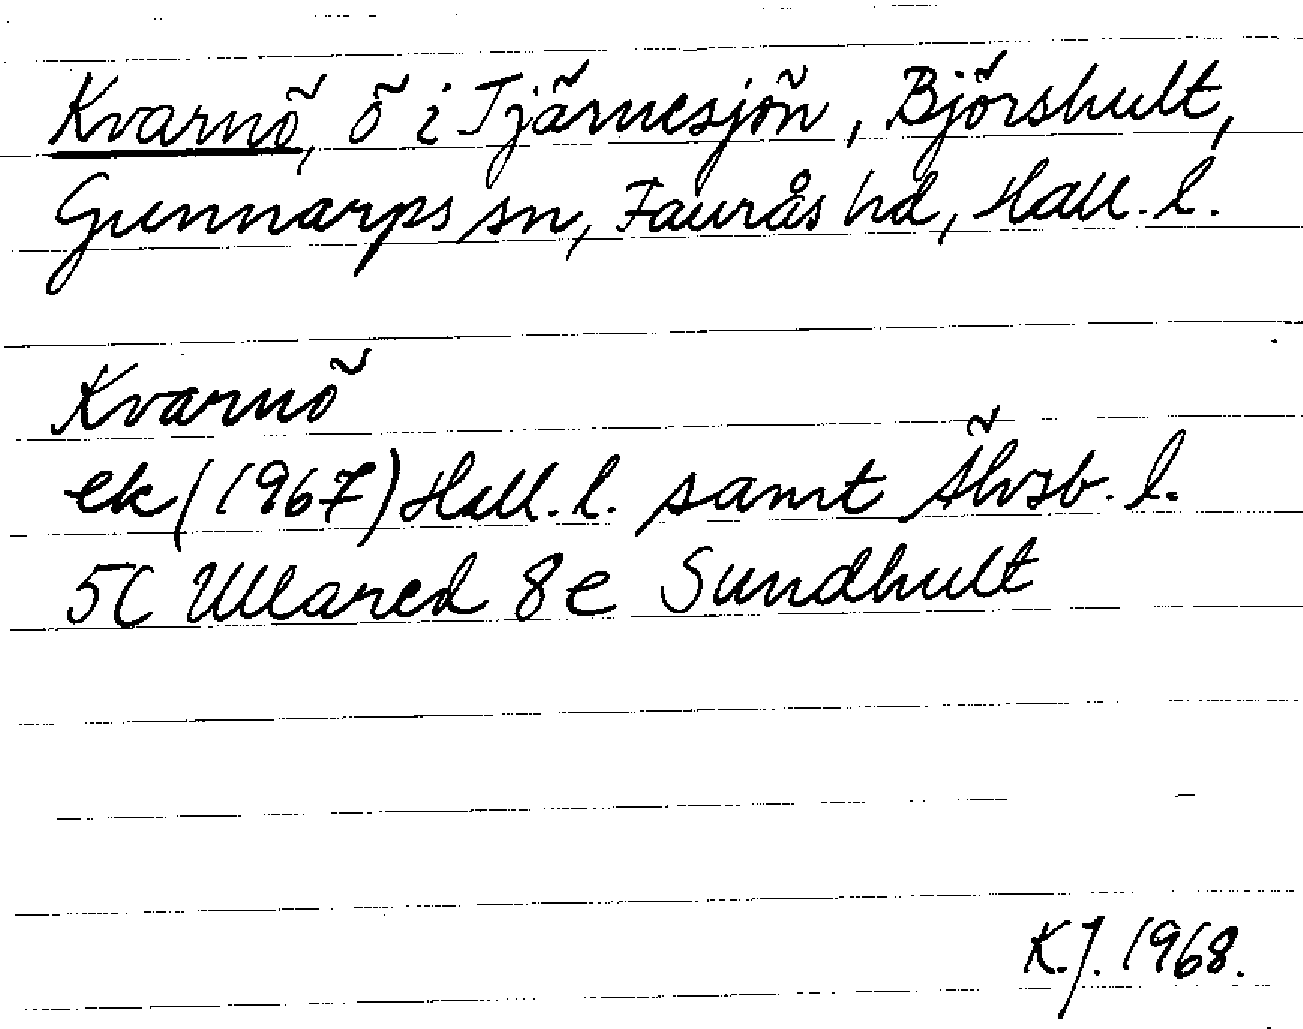 Kvarnö, ö i Tjärnesjön, Björshult,
Gunnarps sn, Faurås hd, Hall. l.
Kvarnö
ek (1967) Hall. l. samt Älvsb. l.
5C Ullared 8e Sundhult
K.J. 1968.